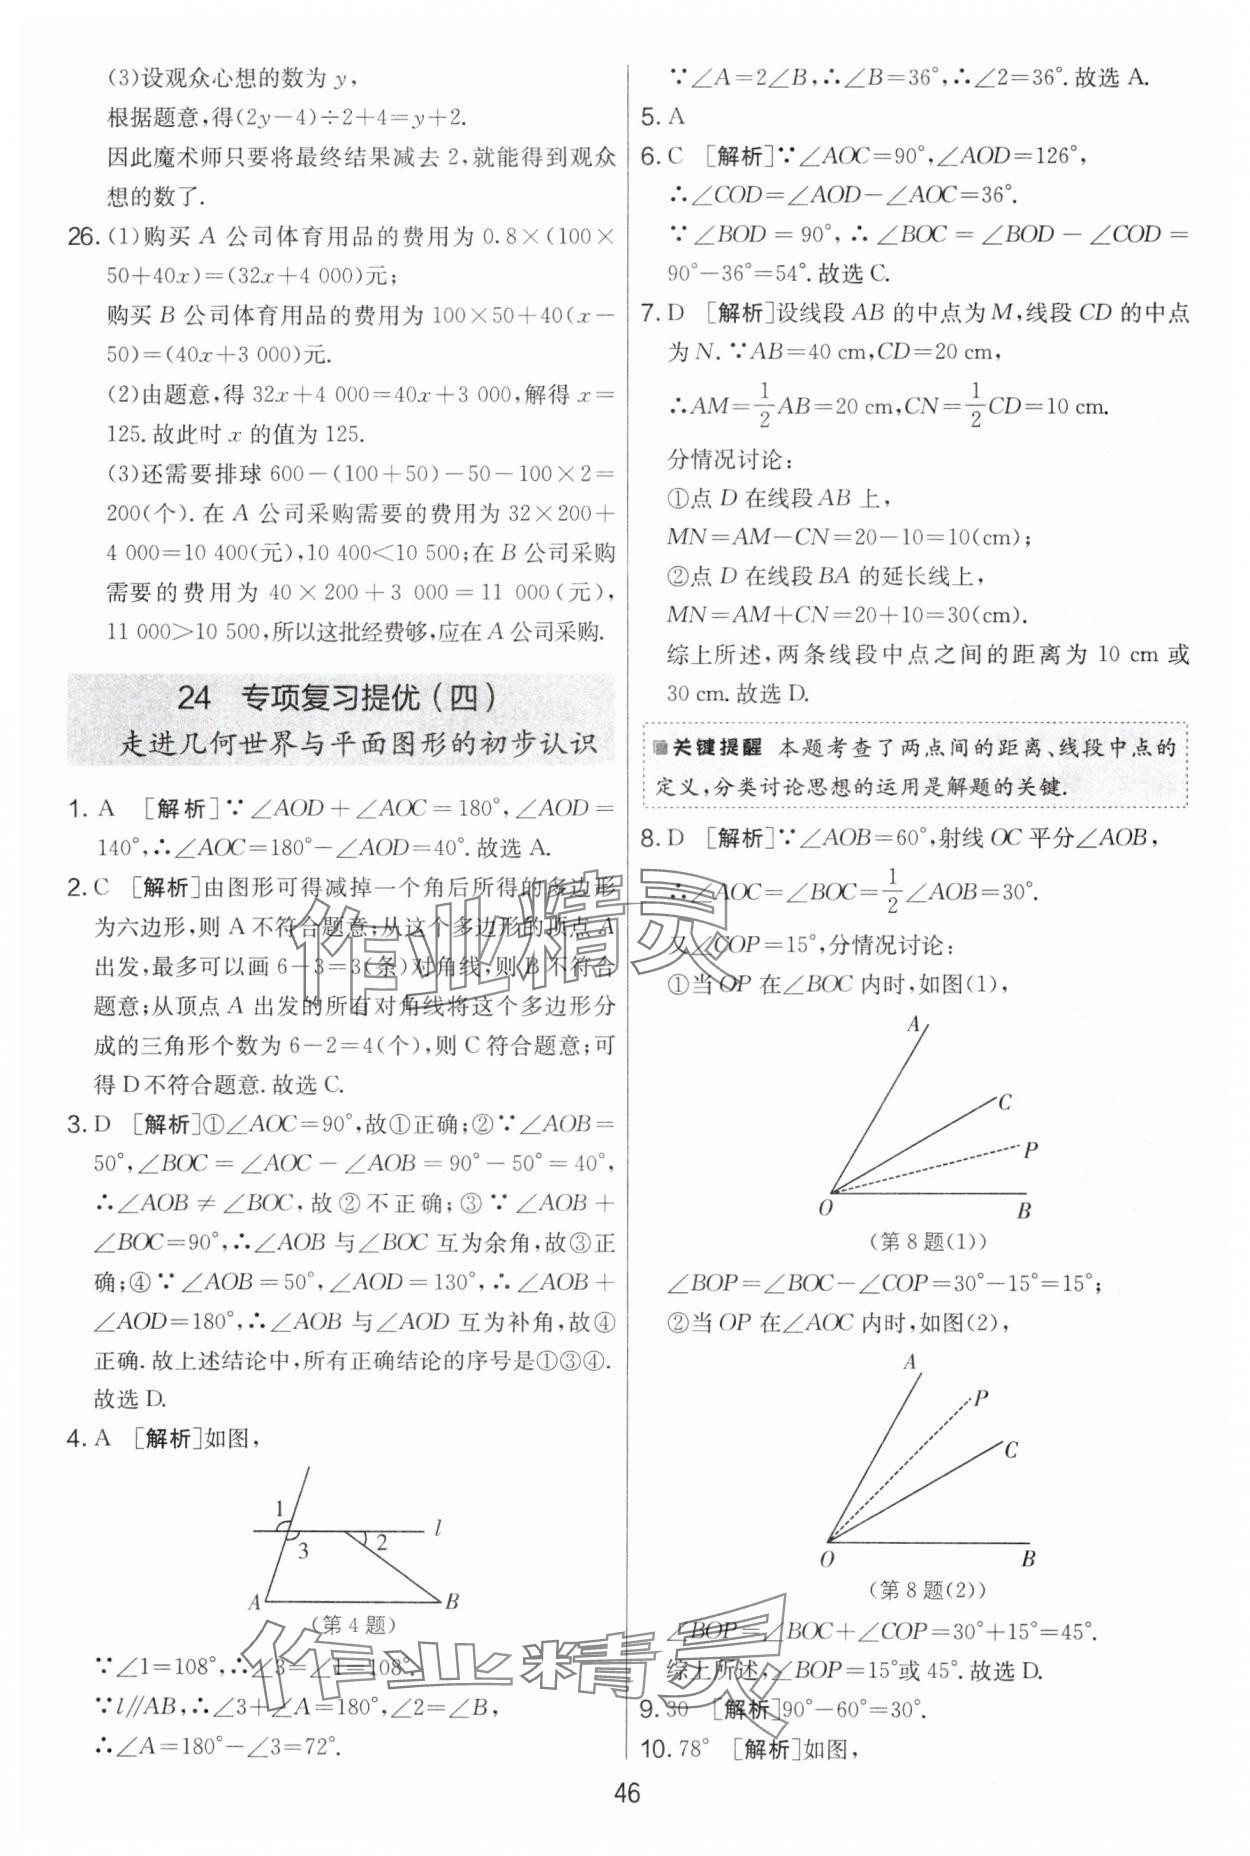 (3)设观众心想的数为 y,
根据题意,得(2y−4)÷2+4=y+2.
因此魔术师只要将最终结果减去 2,就能得到观众
想的数了.
26. (1)购买 A 公司体育用品的费用为 0.8×(100×
50+40x)=(32x+4 000)元;
购买 B 公司体育用品的费用为 100×50+40(x−
50)=(40x+3 000)元.
(2)由题意,得 32x+4 000=40x+3 000,解得 x=
125.故此时 x 的值为 125.
(3)还需要排球 600−(100+50)−50−100×2=
200(个).在 A 公司采购需要的费用为 32×200+
4 000=10 400(元),10 400<10 500;在 B 公司采购
需要的费用为 40×200+3 000=11 000(元),
11 000>10 500,所以这批经费够,应在 A 公司采购.
24 专项复习提优(四)
走进几何世界与平面图形的初步认识
1. A [解析]∵∠AOD+∠AOC=180°,∠AOD=
140°,∴∠AOC=180°−∠AOD=40°.故选 A.
2. C [解析]由图形可得减掉一个角后所得的多边形
为六边形,则 A 不符合题意;从这个多边形的顶点 A
出发,最多可以画 6−3=3(条)对角线,则 B 不符合
题意;从顶点 A 出发的所有对角线将这个多边形分
成的三角形个数为 6−2=4(个),则 C 符合题意;可
得 D 不符合题意.故选 C.
3. D [解析]①∠AOC=90°,故①正确;②∵∠AOB=
50°,∠BOC=∠AOC−∠AOB=90°−50°=40°,
∴∠AOB≠∠BOC,故②不正确;③∵∠AOB+
∠BOC=90°,∴∠AOB 与∠BOC 互为余角,故③正
确;④∵∠AOB=50°,∠AOD=130°,∴∠AOB+
∠AOD=180°,∴∠AOB 与∠AOD 互为补角,故④
正确.故上述结论中,所有正确结论的序号是①③④.
故选 D.
4. A [解析]如图,
1
3
2
l
A
B
(第 4 题)
∵∠1=108°,∴∠3=∠1=108°.
∵l∥AB,∴∠3+∠A=180°,∠2=∠B,
∴∠A=180°−∠3=72°.
∵∠A=2∠B,∴∠B=36°,∴∠2=36°.故选 A.
5. A
6. C [解析]∵∠AOC=90°,∠AOD=126°,
∴∠COD=∠AOD−∠AOC=36°.
∵∠BOD=90°,∴∠BOC=∠BOD−∠COD=
90°−36°=54°.故选 C.
7. D [解析]设线段 AB 的中点为 M,线段 CD 的中点
为 N.∵AB=40 cm,CD=20 cm,
∴AM=1/2AB=20 cm,CN=1/2CD=10 cm.
分情况讨论:
①点 D 在线段 AB 上,
MN=AM−CN=20−10=10(cm);
②点 D 在线段 BA 的延长线上,
MN=AM+CN=20+10=30(cm).
综上所述,两条线段中点之间的距离为 10 cm 或
30 cm.故选 D.
关键提醒 本题考查了两点间的距离、线段中点的
定义,分类讨论思想的运用是解题的关键.
8. D [解析]∵∠AOB=60°,射线 OC 平分∠AOB,
∴∠AOC=∠BOC=1/2∠AOB=30°.
又∠COP=15°,分情况讨论:
①当 OP 在∠BOC 内时,如图(1),
A
C
P
O
B
(第 8 题(1))
∠BOP=∠BOC−∠COP=30°−15°=15°;
②当 OP 在∠AOC 内时,如图(2),
A
P
C
O
B
(第 8 题(2))
∠BOP=∠BOC+∠COP=30°+15°=45°.
综上所述,∠BOP=15°或 45°.故选 D.
9. 30 [解析]90°−60°=30°.
10. 78° [解析]如图,
46
作业精灵
作业精灵